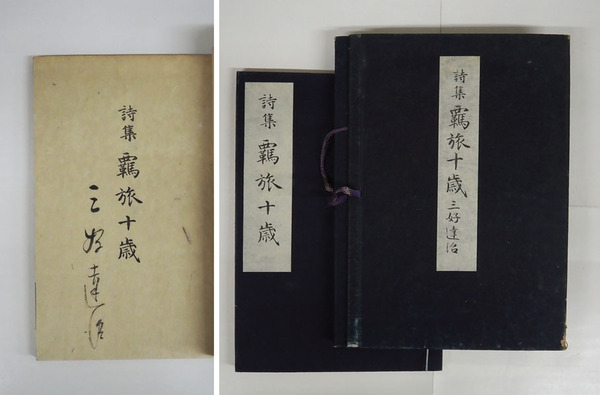 詩集 覊旅十歳
三好達治
詩集 覊旅十歳
詩集 覊旅十歳 三好達治